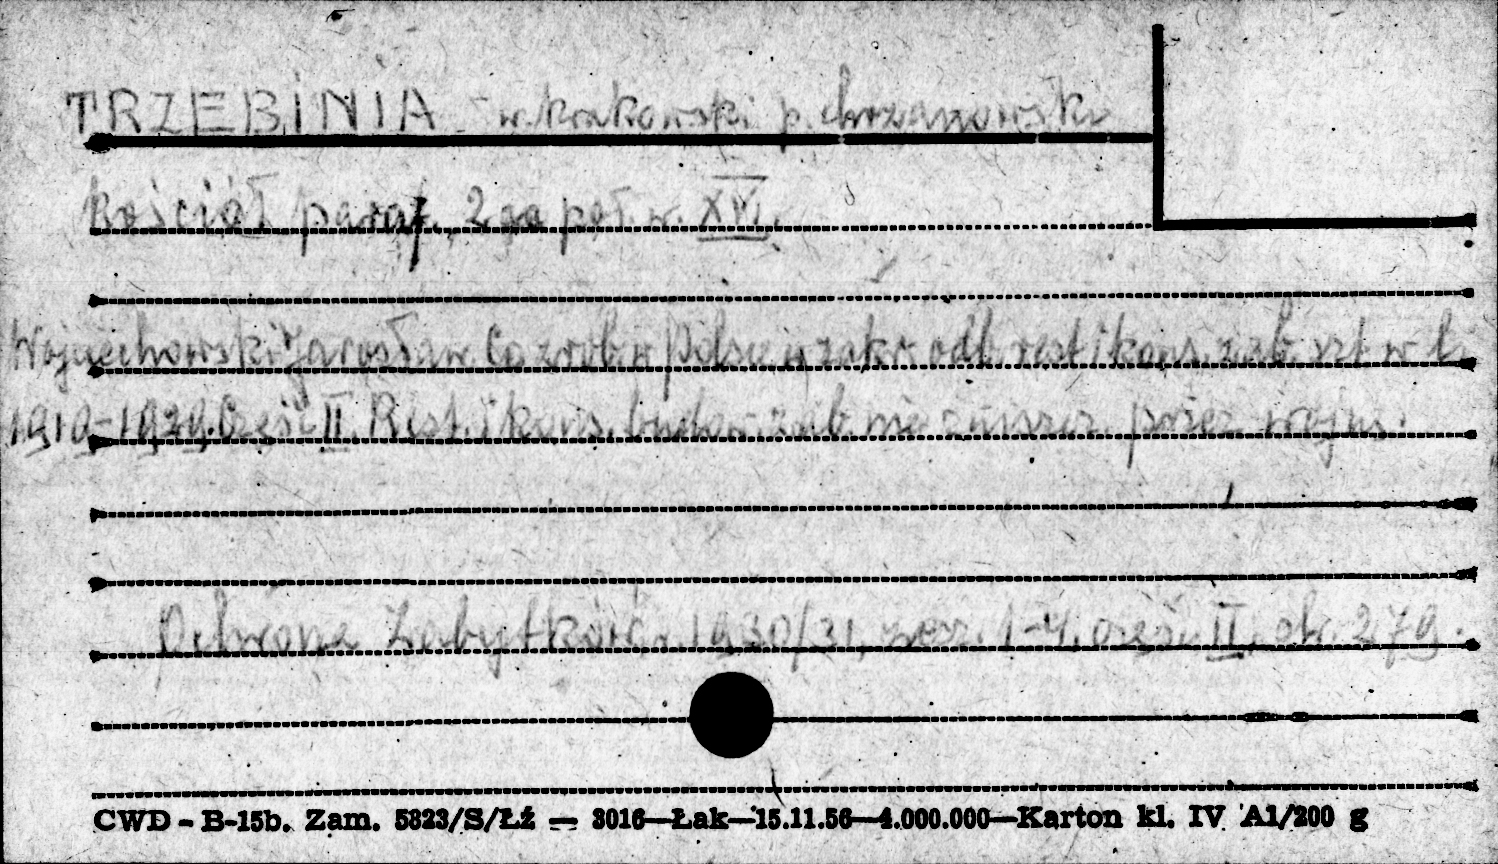 TRZEBINIA - w. krakowski p. chrzanowski
Kościół paraf. 2ga poł. w. XVI.
Wojciechowski Jarosław Co zrob. w Polsce w zakr. odb. rest. i kons. zab. szt. w l.
1919-1929. Część II. Rest. i kons. budow. zab. nie zniszcz. przez wojnę.
Ochrona Zabytków, 1930/31, zesz. 1-4, część II, str. 279.
CWD - B-15b. Zam. 5323/S/Łź — 3016—Łak—15.11.56—4.000.000—Karton kl. IV A1/200 g